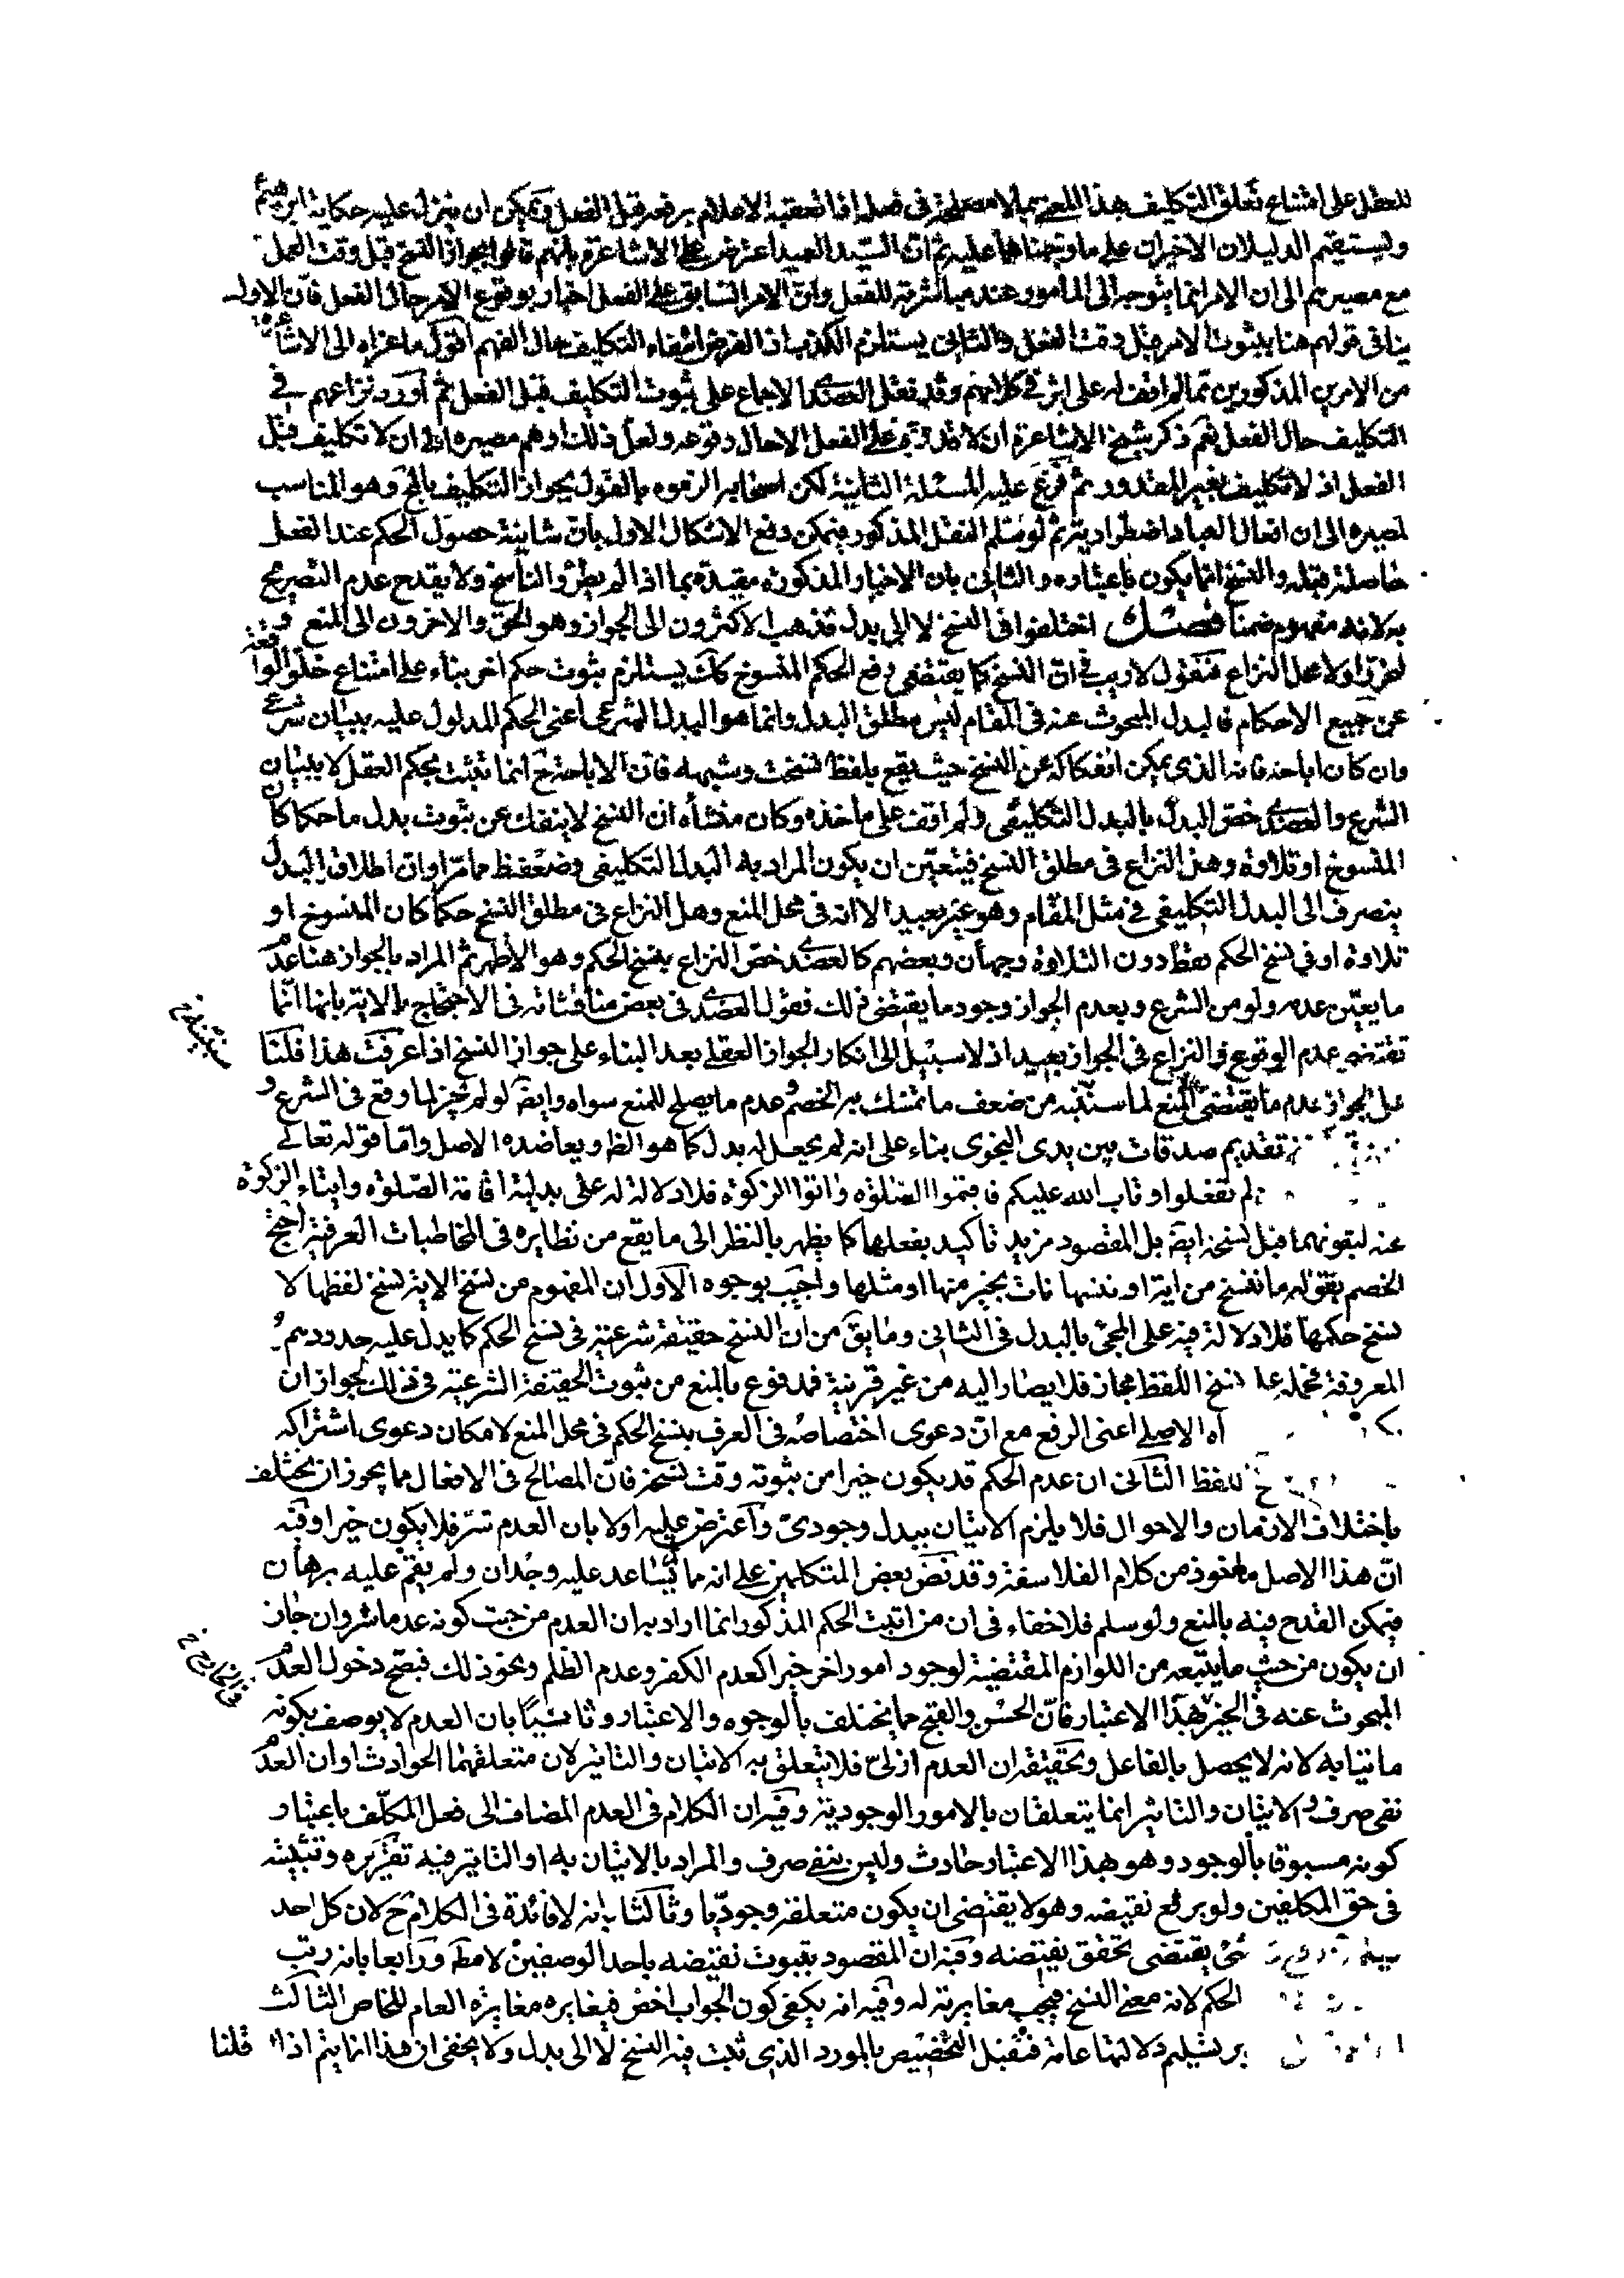 للعقل على امتناع تعلق التكليف بهذا المعنى بما لا مصلحة في فعله اذا تعقبه الاعلام برفعه قبل الفعل ويمكن ان ينزل عليه حكاية ابرهيم
وليستقيم الدليلان الاخيران على ما وجهناهما عليه ثم ان السيد العميد اعترض على الاشاعرة بانهم قالوا بجواز النسخ قبل وقت العمل
مع مصيرهم الى ان الامر انما يتوجه الى المأمور عند مباشرته للفعل وان الامر السابق على الفعل اخبار بوقوع الامر حال الفعل فان الاول
ينافي قولهم هنا بثبوت الامر قبل وقت الفعل والثاني يستلزم الكذب اذ الفرض انتفاء التكليف حال الفهم اقول ما عزاه الى الاشاعرة
من الامرين المذكورين مما لم اقف له على اثر في كلامهم وقد نقل العضدي الاجماع على ثبوت التكليف قبل الفعل ثم اورد نزاعهم في
التكليف حال الفعل نعم ذكر شيخ الاشاعرة ان لا قدرة على الفعل الا حال وقوعه ولعل ذلك اوهم مصيره الى ان لا تكليف قبل
الفعل اذ لا تكليف بغير المقدور ثم فرع عليه المسئلة الثانية لكن اصحابه الزموه بالقول بجواز التكليف بالمح وهو المناسب
لمصيره الى ان افعال العباد اضطرارية ثم لو سلم النقل المذكور فيمكن دفع الاشكال الاول بان شانية حصول الحكم عند الفعل
حاصلة قبله والنسخ انما يكون باعتباره والثاني بان الاخبار المذكورة مقيدة بما اذا لم يطرء الناسخ ولا يقدح عدم التصريح
به لانه مفهوم ضمنا فصل اختلفوا في النسخ لا الى بدل فذهب الاكثرون الى الجواز وهو الحق والاخرون الى المنع و
لنحرر اولا محل النزاع فنقول لا ريب في ان النسخ كما يقتضي رفع الحكم المنسوخ كك يستلزم ثبوت حكم اخر بناء على امتناع خلو الواقعة
عن جميع الاحكام فالبدل المبحوث عنه في المقام ليس مطلق البدل وانما هو البدل الشرعي اعني الحكم المدلول عليه ببيان شرعي
وان كان اباحة فانه الذي يمكن انفكاكه عن النسخ حيث يقع بلفظ نسخت وشبهه فان الاباحة ح انما تثبت بحكم العقل لا ببيان
الشرع والعضدي خص البدل بالبدل التكليفي ولم اقف على ماخذه وكان منشأه ان النسخ لا ينفك عن ثبوت بدل ما حكما كان
المنسوخ او تلاوة وهذا النزاع في مطلق النسخ فيتعين ان يكون المراد به البدل التكليفي وضعفه ظ مما مر او ان اطلاق البدل
ينصرف الى البدل التكليفي في مثل المقام وهو غير بعيد الا انه في محل المنع وهل النزاع في مطلق النسخ حكما كان المنسوخ او
تلاوة او في نسخ الحكم فقط دون التلاوة وجهان وبعضهم كالعضدي خص النزاع بنسخ الحكم وهو الاظهر ثم المراد بالجواز هنا عدم
ما يعين عدمه ولو من الشرع وبعدم الجواز وجود ما يقتضي ذلك فقول العضدي في بعض مناقشاته في الاحتجاج بالاية بانها انما
تقتضي عدم الوقوع والنزاع في الجواز بعيد اذ لا سبيل الى انكار الجواز العقلي بعد البناء على جواز النسخ اذا عرفت هذا فلنا
على الجواز عدم ما يقتضي المنع لما سننبه من ضعف ما تمسك به الخصم وعدم ما يصلح للمنع سواه وايض لو لم يجز لما وقع في الشرع و
تقديم صدقات بين يدي النجوى بناء على انه لم يجعل له بدل كما هو الظ ويعاضده الاصل واما قوله تعالى
لم تفعلوا وتاب الله عليكم فاقيموا الصلوة واتوا الزكوة فلا دلالة له على بدلية اقامة الصلوة وايتاء الزكوة
عنه لبقوتهما قبل نسخه ايض بل المقصود مزيد تاكيد بفعلها كما يظهر بالنظر الى ما يقع من نظايره في المخاطبات العرفية احتج
الخصم بقوله ما ننسخ من اية او ننسها نات بخير منها او مثلها واجيب بوجوه الاول ان المفهوم من نسخ الاية نسخ لفظها لا
نسخ حكمها فلا دلالة فيه على المجئ بالبدل في الثاني وما يق من ان النسخ حقيقة شرعية في نسخ الحكم كما يدل عليه حدودهم
المعروفة فحمله على نسخ اللفظ مجاز فلا يصار اليه من غير قرينة فمدفوع بالمنع من ثبوت الحقيقة الشرعية في ذلك لجواز ان
اه الاصلي اعني الرفع مع ان دعوى اختصاصه في العرف بنسخ الحكم في محل المنع لامكان دعوى اشتراكه
للفظ الثاني ان عدم الحكم قد يكون خيرا من ثبوته وقت نسخه فان المصالح في الافعال مما يجوز ان يختلف
باختلاف الازمان والاحوال فلا يلزم الاتيان ببدل وجودي واعترض عليه اولا بان العدم شر فلا يكون خيرا وفيه
ان هذا الاصل ماخوذ من كلام الفلاسفة وقد نص بعض المتكلمين على انه مما لا يساعد عليه وجدان ولم يقم عليه برهان
فيمكن القدح فيه بالمنع ولو سلم فلا خفاء في ان من اثبت الحكم المذكور انما اراد به ان العدم من حيث كونه عدما شر وان جاز
ان يكون من حيث ما يتبعه من اللوازم المقتضية لوجود امور اخر خيرا كعدم الكفر وعدم الظلم ونحو ذلك فيصح دخول العدم
المبحوث عنه في الخير بهذا الاعتبار فان الحسن والقبح مما يختلف بالوجوه والاعتبار وثانيا بان العدم لا يوصف بكونه
ماتيا به لانه لا يحصل بالفاعل وتحقيقه ان العدم ازلي فلا يتعلق به الاتيان والتاثير لان متعلقهما الحوادث او ان العدم
نفي صرف والاتيان والتاثير انما يتعلقان بالامور الوجودية وفيه ان الكلام في العدم المضاف الى فعل المكلف باعتبار
كونه مسبوقا بالوجود وهو بهذا الاعتبار حادث وليس بنفي صرف والمراد بالاتيان به او التاثير فيه تقريره وتثبيته
في حق المكلفين ولو برفع نقيضه وهو لا يقتضي ان يكون متعلقه وجوديا وثالثا بانه لا فائدة في الكلام ح لان كل احد
شئ يقتضي تحقق نقيضه وفيه ان المقصود بثبوت نقيضه باحد الوصفين لا مط ورابعا بانه رتب
الحكم لانه معنى النسخ فيجب مغايرته له وفيه انه يكفي كون الجواب اخص فيغايره مغايرة العام للخاص الثالث
بر تسليم دلالتها عامة فتقبل التخصيص بالمورد الذي ثبت فيه النسخ لا الى بدل ولا يخفى ان هذا انما يتم اذا قلنا